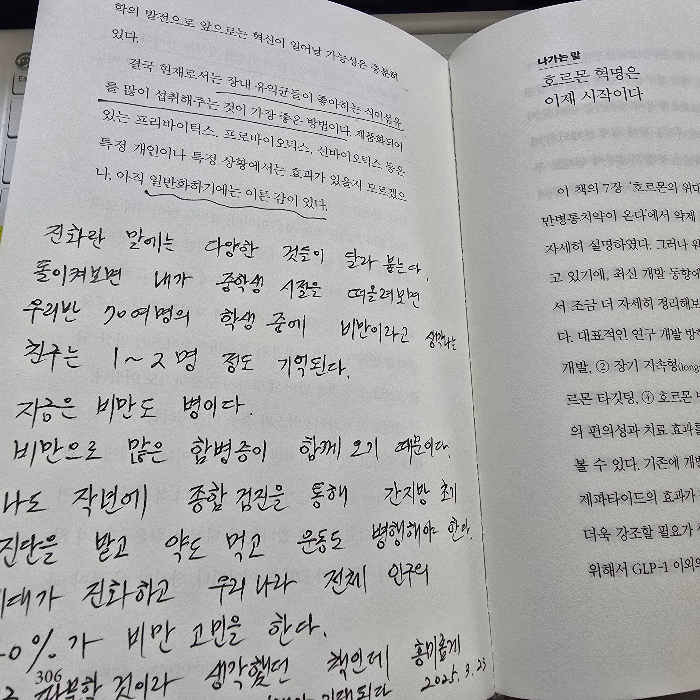 학의 발전으로 앞으로는 혁신이 일어날 가능성은 충분해
있다.
결국 현재로서는 장내 유익균들이 좋아하는 식이섬유
를 많이 섭취해주는 것이 가장 좋은 방법이다. 제품화되어
있는 프리바이틱스, 프로바이오틱스, 신바이오틱스 등은
특정 개인이나 특정 상황에서는 효과가 있을지 모르겠으
나, 아직 일반화하기에는 이른 감이 있다.
진화란 말에는 다양한 것들이 달라 붙는다.
돌이켜보면 내가 중학생 시절을 떠올려보면
우리반 70여명의 학생 중에 비만이라고 생각나는
친구는 1~2명 정도 기억된다.
지금은 비만도 병이다.
비만으로 많은 합병증이 함께 오기 때문이다.
나도 작년에 종합검진을 통해 간지방 초기
진단을 받고 약도 먹고 운동도 병행해야 한다.
진화하고 우리나라 전체 인구의
0%가 비만 고민을 한다.
것이라 생각했던 책인데 흥미롭게
기대된다
2025.3.23
306
나가는 말
호르몬 혁명은
이제 시작이다
이 책의 7장 '호르몬의 위대
만병통치약이 온다'에서 약제
자세히 설명하였다. 그러나 워
고 있기에, 최신 개발 동향에
서 조금 더 자세히 정리해보
다. 대표적인 연구 개발 방
개발, ② 장기 지속형(long
르몬 타깃팅, ④ 호르몬
의 편의성과 치료 효과를
볼 수 있다. 기존에 개발
제파타이드의 효과가
더욱 강조할 필요가
위해서 GLP-1 이외의